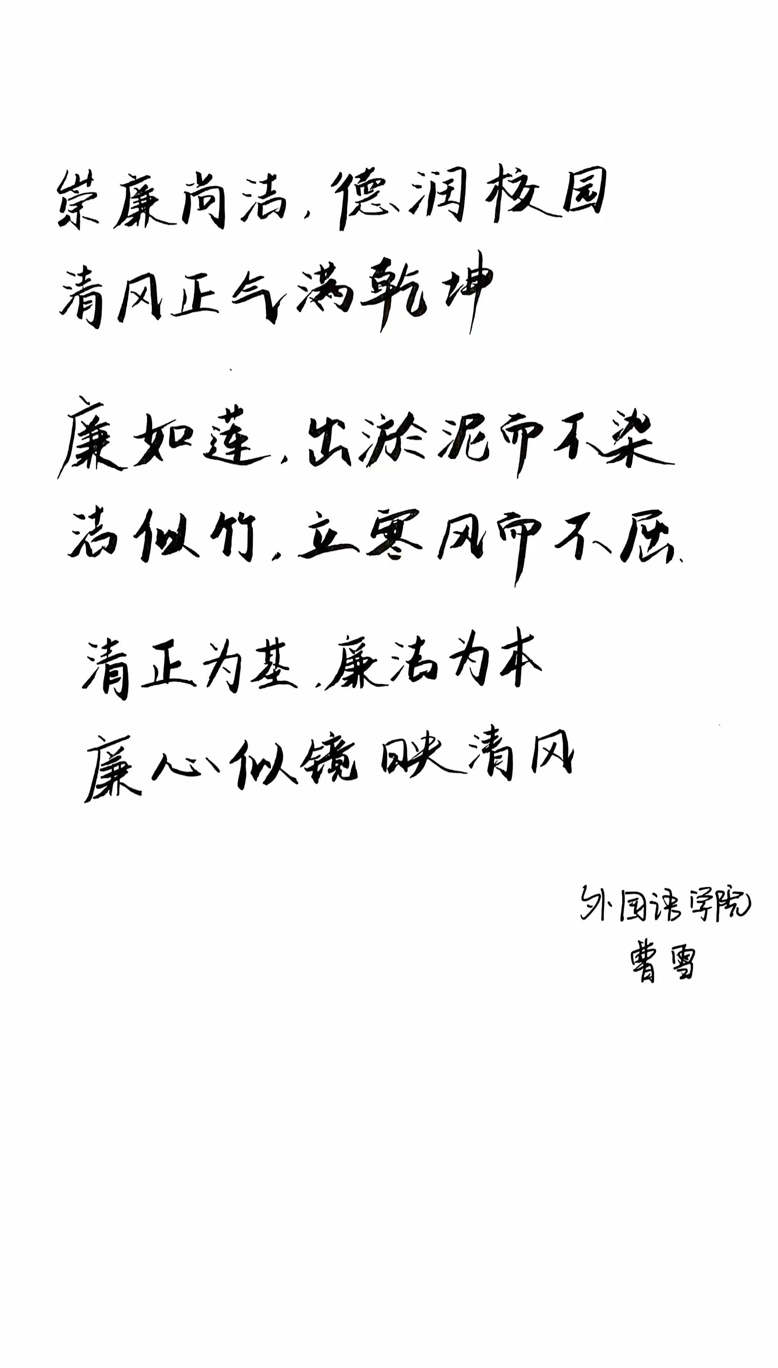 崇廉尚洁，德润校园
清风正气满乾坤
廉如莲，出淤泥而不染
洁似竹，立寒风而不屈.
清正为基，廉洁为本
廉心似镜映清风
外国语学院
曹雪